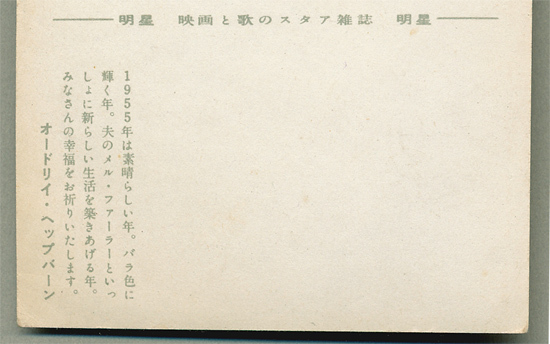 明星 映画と歌のスタア雑誌 明星
1955年は素晴らしい年。バラ色に
輝く年。夫のメル・ファーラーといっ
しょに新らしい生活を築きあげる年。
みなさんの幸福をお祈りいたします。
オードリイ・ヘップバーン